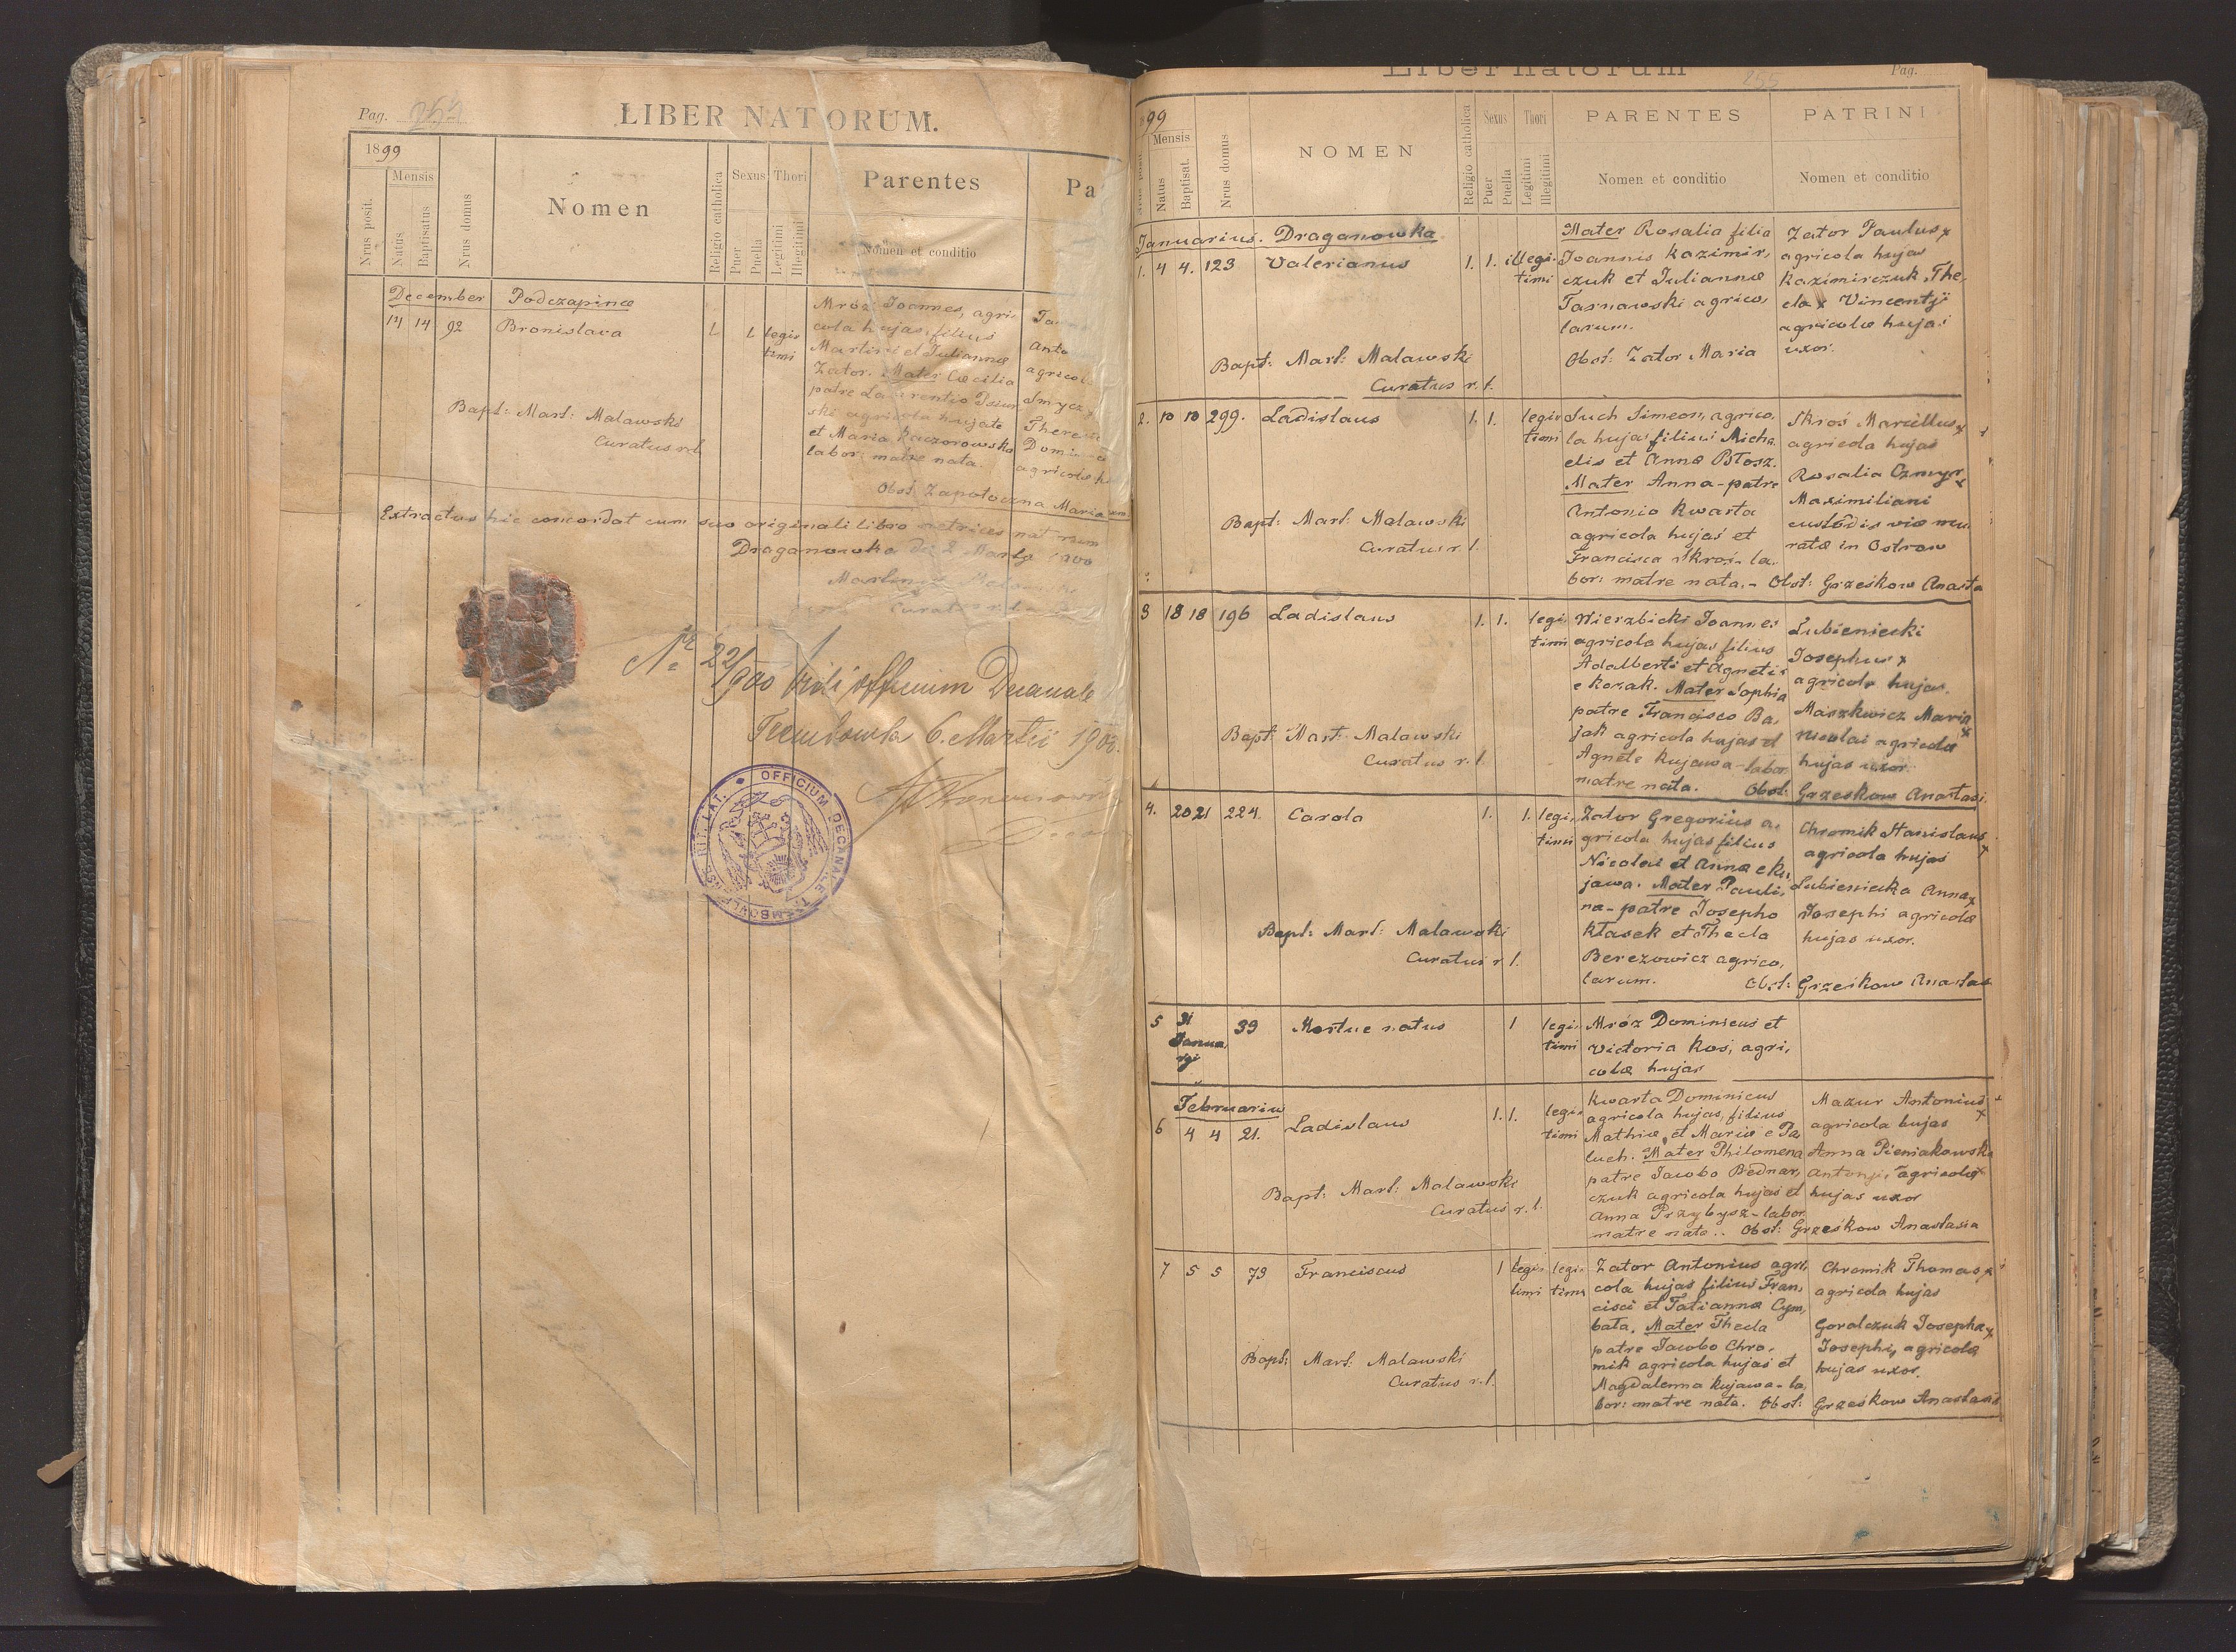 Pag. 254
LIBER NATORUM.
1899
Nrus posit.
Mensis
Natus
Baptisatus
Nrus domus
Nomen
Religio catholica
Sexus
Puer
Puella
Thori
Legitimi
Illegitimi
Parentes
Nomen et conditio
Pa
December Podczapinæ
14 14 92 Bronislava 1. 1. legi-
timi
Mróz Joannes, agri-
cola hujas, filius
Martini et Juliannæ
Zator. Mater Cæcilia
patre Laurentio
ski agricola hujate
et Maria Kaczorowska
labor: matre nata.
Anto
agricol
Smycz
There
Domi
agricolæ
Bapt: Mart: Malawski
Curatus r.l.
Obst. Zapotoczna Maria
Extractus hic concordat cum suo originali libro metrices nat
Draganowka die 2 Martji 1900
Martinus
Curatus r. l.
Nr 22/900 Vidi officium Decanale
Trembowla 6. Martii 1900.
OFFICIUM DECANALE TREMBOVLENSE RIT. LAT.
Liber natorum
255
Pag.
99
Mensis
Natus
Baptisat.
Nrus domus
NOMEN
Religio catholica
Sexus
Puer
Puella
Thori
Legitimi
Illegitimi
PARENTES
Nomen et conditio
PATRINI
Nomen et conditio
Januarius. Draganowka
1. 4 4. 123 Valerianus 1. 1. illegi-
timi
Mater Rosalia filia
Joannis Kazimir,
czuk et Juliannæ
Tarnawski agrico,
larum.
Obst: Zator Maria
Zator Paulus x
agricola hujas
Kazimirczuk The,
cla x Vincentji
agricolæ hujas
uxor.
Bapt: Mart: Malawski
Curatus r. l.
2. 10 10 299. Ladislaus 1. 1. legi-
timi
Such Simeon, agrico,
la hujas filius Micha
elis et Annæ Błosz.
Mater Anna - patre
Antonio Kwarta
agricola hujas et
Francisca Skroś - la,
bor: matre nata. - Obst: Grzeskow Anasta
Skroś Marcellus x
agricola hujas
Rosalia Czmyr x
Maximiliani
custodis viæ mu
ratæ in Ostrow
Bapt: Mart: Malawski
Curatus r. l.
3 18 18 196 Ladislaus 1. 1. legi-
timi
Wierzbicki Joannes
agricola hujas filius
Adalberti et Agnetis
e Kozak. Mater Sophia
patre Francisco Ba,
jak agricola hujas et
Agnete Kujawa - labor
matre nata. Obst: Grzeskow Anastasi
Lubieniecki
Josephus x
agricola hujas.
Maszkwicz Maria x
Nicolai agricolæ
hujas uxor.
Bapt Mart. Malawski
Curatus r. l.
4. 20 21 224. Carola 1. 1. legi-
timi
Zator Gregorius a,
gricola hujas filius
Nicolai et Annæ e Ku,
jawa. Mater Pauli,
na - patre Josepho
Kłasek et Thecla
Berezowicz agrico,
larum. Obst: Grzeskow Anastas
Chromik Stanislaus x
agricola hujas
Lubieniecka Anna x
Josephi agricolæ
hujas uxor.
Bapt: Mart: Malawski
Curatus r l.
5 31 Janua,
rji
39 Mortue natus 1 legi-
timi
Mróz Dominicus et
Victoria Kos, agri,
colæ hujas
Februarius
6 4 4 21. Ladislaus 1. 1. legi-
timi
Kwarta Dominicus
agricola hujas, filius
Mathiæ, et Mariæ e Pa
luch. Mater Philomena
patre Jacobo Bednar,
czuk agricola hujas et
Anna Przybysz - labor
matre nata. . Obst: Grzeskow Anastasia
Mazur Antonius x
agricola hujas
Anna Pieniakowska
Antonji, agricolæ x
hujas uxor
Bapt: Mart: Malawski
Curatus r. l.
7 5 5 73 Franciscus 1 legi-
timi legi-
timi
Zator Antonius agri,
cola hujas filius Fran,
cisci et Tatiannæ Cym,
bała. Mater Thecla
patre Jacobo Chro,
mik agricola hujas et
Magdalenna Kujawa - la,
bor: matre nata. Obst: Grzeskow Anastasia
Chromik Thomas x
agricola hujas
Goralczuk Josepha x
Josephi, agricolæ
hujas uxor.
Bapt: Mart: Malawski
Curatus r. l.